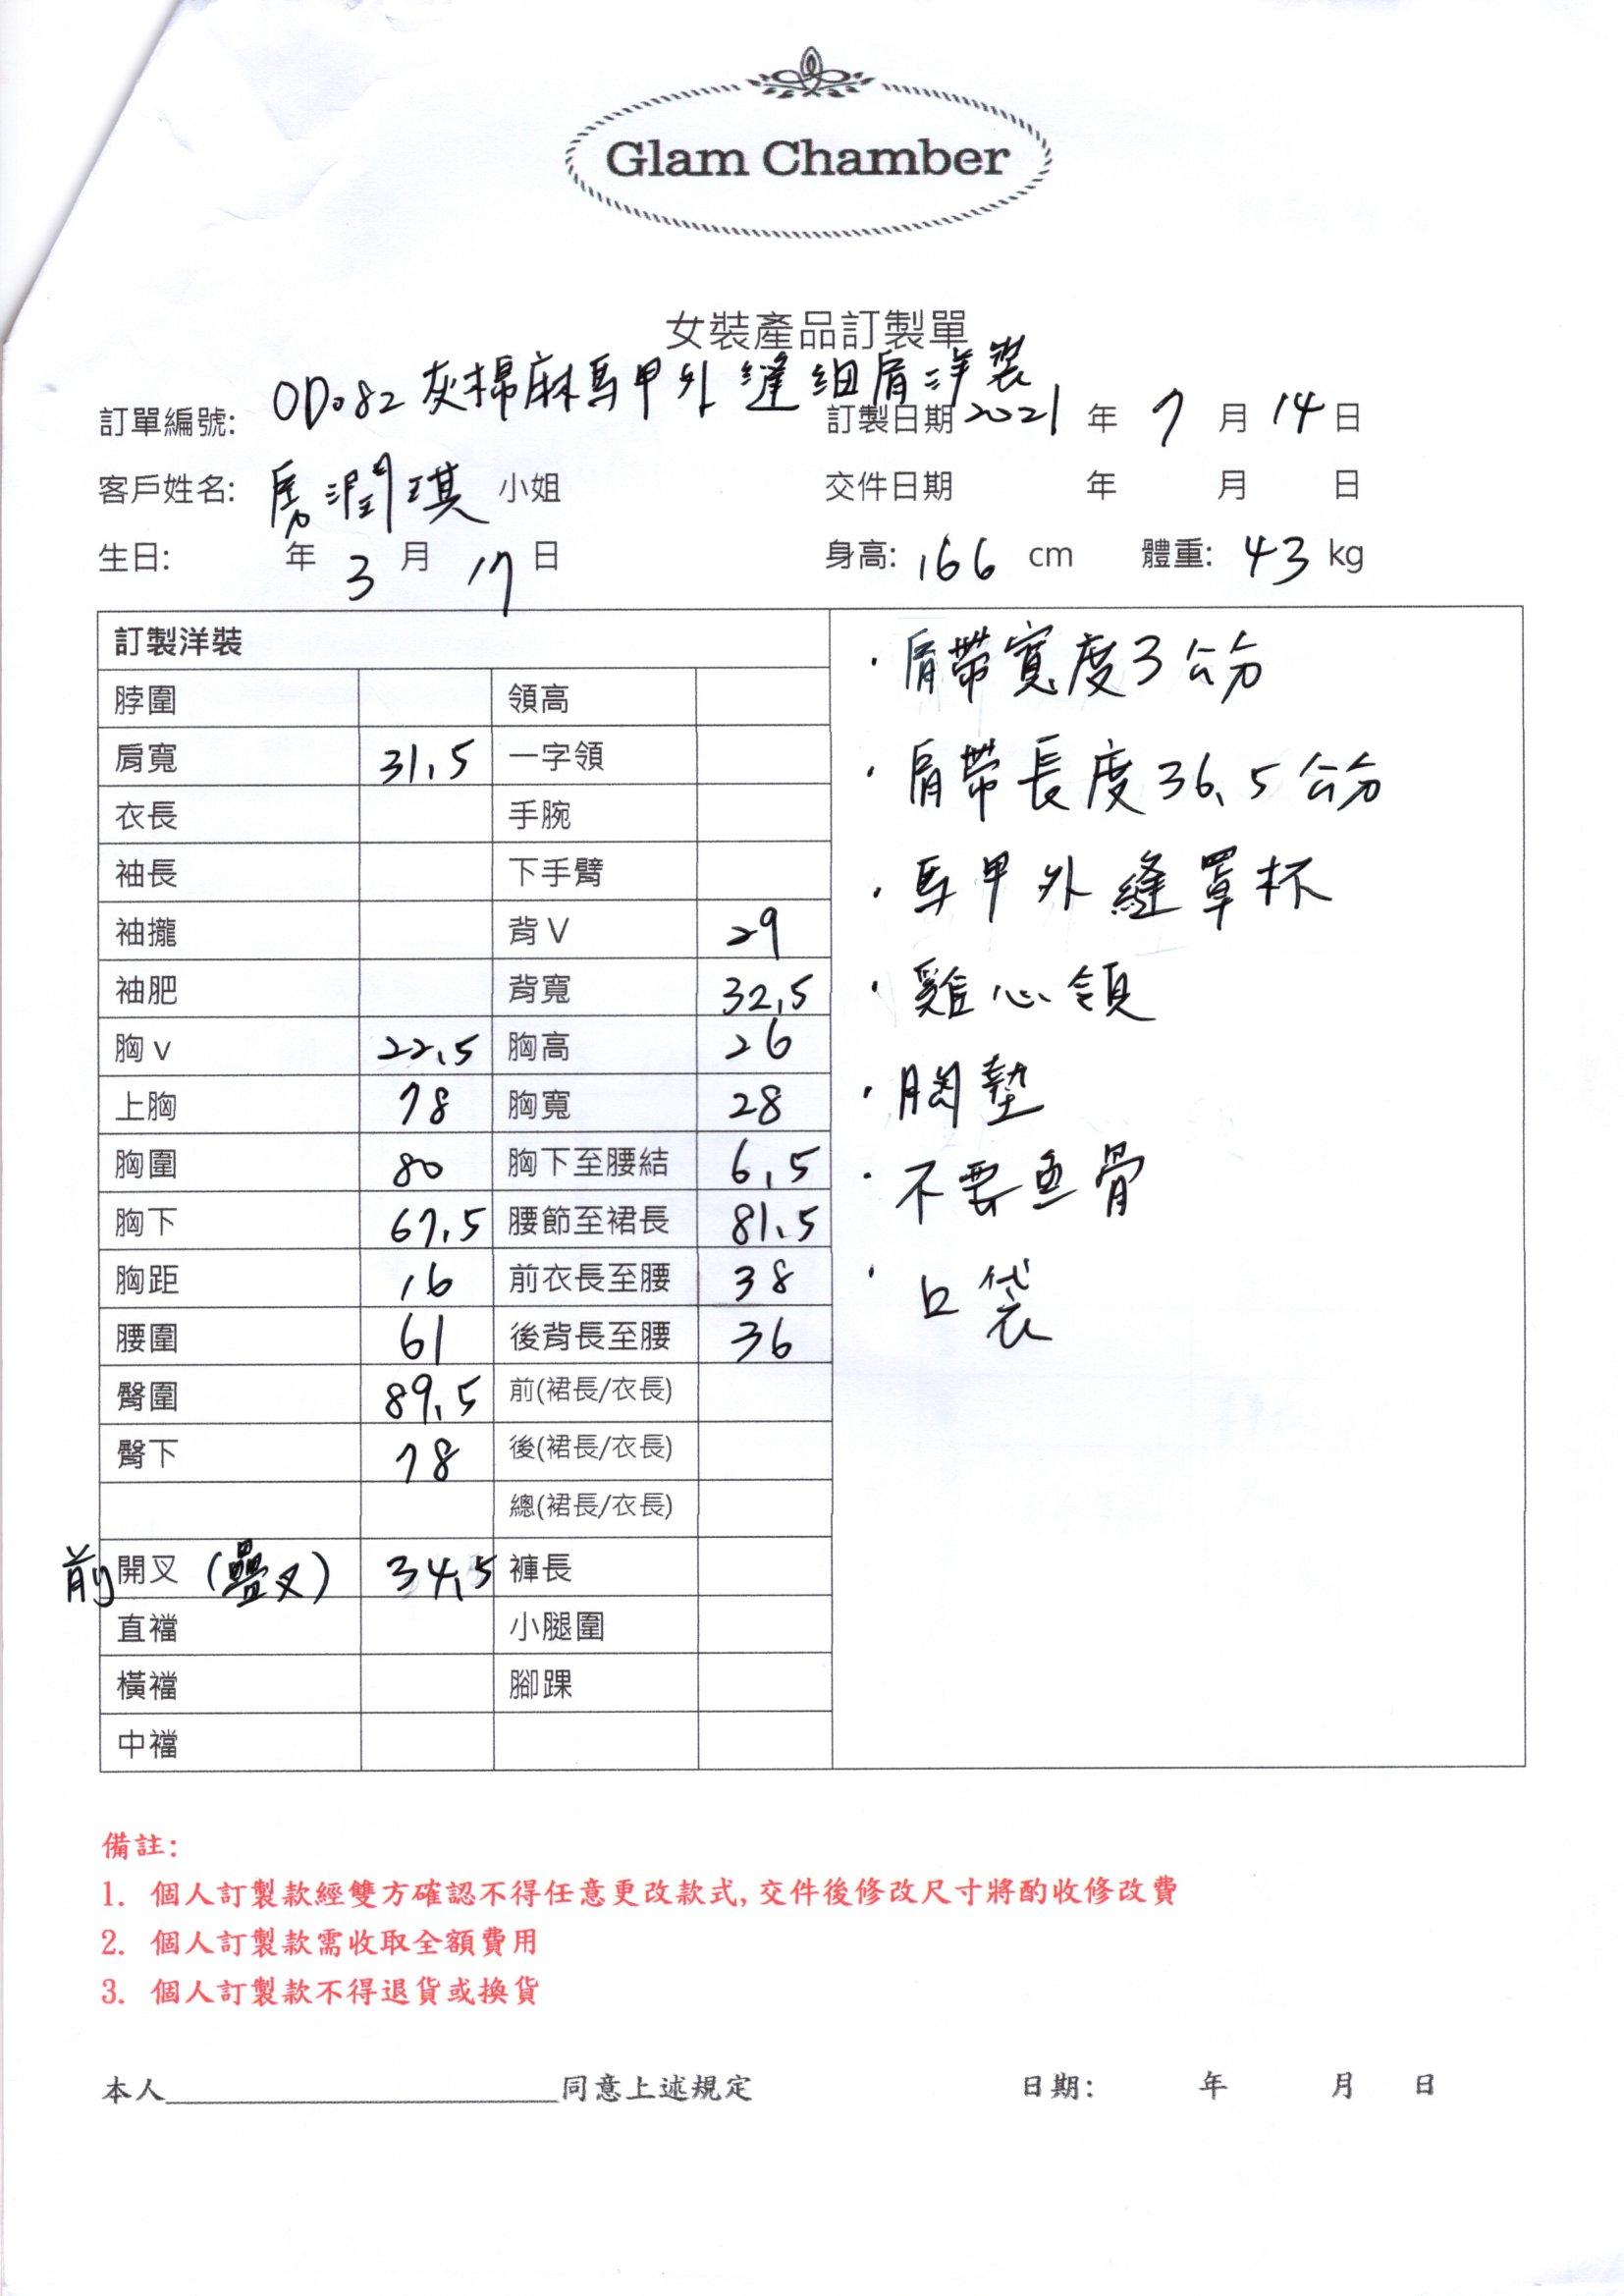 Glam Chamber
女裝產品訂製單
訂單編號: OD082 灰棉麻馬甲外縫細肩洋裝
訂製日期 2021 年 7 月 14 日
客戶姓名: 房潤琪 小姐
交件日期 年 月 日
生日: 年 3 月 17 日
身高: 166 cm 體重: 43 kg
訂製洋裝
脖圍 領高
肩寬 31.5 一字領
衣長 手腕
袖長 下手臂
袖攏 背V 29
袖肥 背寬 32.5
胸v 22.5 胸高 26
上胸 78 胸寬 28
胸圍 80 胸下至腰結 6.5
胸下 67.5 腰節至裙長 81.5
胸距 16 前衣長至腰 38
腰圍 61 後背長至腰 36
臀圍 89.5 前(裙長/衣長)
臀下 78 後(裙長/衣長)
總(裙長/衣長)
前 開叉 (疊叉) 34.5 褲長
直襠 小腿圍
橫襠 腳踝
中襠
·肩帶寬度3公分
·肩帶長度36.5公分
·馬甲外縫罩杯
·雞心領
·胸墊
·不要魚骨
·口袋
備註:
1. 個人訂製款經雙方確認不得任意更改款式,交件後修改尺寸將酌收修改費
2. 個人訂製款需收取全額費用
3. 個人訂製款不得退貨或換貨
本人 同意上述規定 日期: 年 月 日